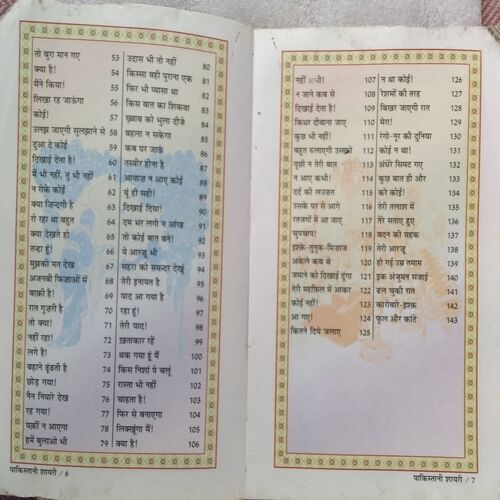 तो बुरा मान गए 53
क्या है! 54
मैंने किया! 55
लिखा रह जाऊंगा 56
कोई! 57
उलझ जाएगी सुलझाने से 58
दुआ दे कोई 59
दिखाई देता है! 60
मैं भी नहीं, तू भी नहीं 61
न रोके कोई 62
क्या ज़िन्दगी है 63
रो रहा था बहुत 64
क्या देखते हो 65
तन्हा हूं! 66
मुझको मत देख 67
अजनबी फिज़ाओं में 68
बाक़ी है! 69
रात गुज़री है 70
तो क्या! 71
नहीं रहा! 72
लगे है! 73
बहाने ढूंढती है 74
छोड़ गया! 75
नैन नियारे देख 76
रह गया! 77
यक़ीं न आएगा 78
हमें बुलाओ भी 79
उदास भी तो नहीं 80
किस्सा वही पुराना एक 81
फिर भी प्यासा था 82
किस बात का शिकवा 83
ख़्वाब को भुला दीजे 84
बहला न सकेगा 85
कब घर जाऊं 86
तस्वीर होना है 87
आवाज़ न आए कोई 88
यूं ही सही! 89
दिखाई दिया! 90
टम भर लगी न आंख 91
तो कोई बात बने! 92
ये आरज़ू भी 93
सहरा को समन्दर देखूं 94
तेरी इनायत है 95
याद आ गया है 96
रहा हूं! 97
तेरी याद! 98
ख़ताकार रहें 99
थक गया हूं मैं 100
किस निशां पे चलूं 101
रास्ता भी नहीं 102
चाहता है! 103
फिर से बनाएगा 104
लिक्खूंगा मैं! 105
क्या है! 106
पाकिस्तानी शायरी / 6
नहीं भी! 107
न जाने कब से 108
दिखाई देता है! 109
किधर दीवाना जाए 110
कुछ भी नहीं! 111
बहुत रुलाएगी उसको 112
पूछी न तेरी बात 113
न आए कभी! 114
दर्द की लज़्ज़त 115
उसके घर से आगे 116
रतजगों में आ जाए 117
चुपचाप! 118
इश्क़-तुनुक-मिज़ाज 119
अकेले कब थे 120
जमाने को दिखाई दूंगा 121
तेरी महफ़िल में आकर 122
कोई नहीं! 123
आ गए! 124
कितने दिये जलाए 125
न था कोई! 126
रेशमों की तरह 127
बिखर जाएगी रात 128
मेरा! 129
रंगो-नूर की दुनिया 130
कोई न था! 131
अंधेरे सिमट गए 132
कुछ बात ही और 133
करे कोई! 134
तेरी तलाश में 135
तेरे सताए हुए 136
बदन की महक 137
तेरी आरज़ू 138
हो गई उम्र तमाम 139
इक अंजुमन सजाई 140
ढल चुकी रात 141
कारोबारे-इश्क़ 142
फूल और कांटे 143
पाकिस्तानी शायरी / 7